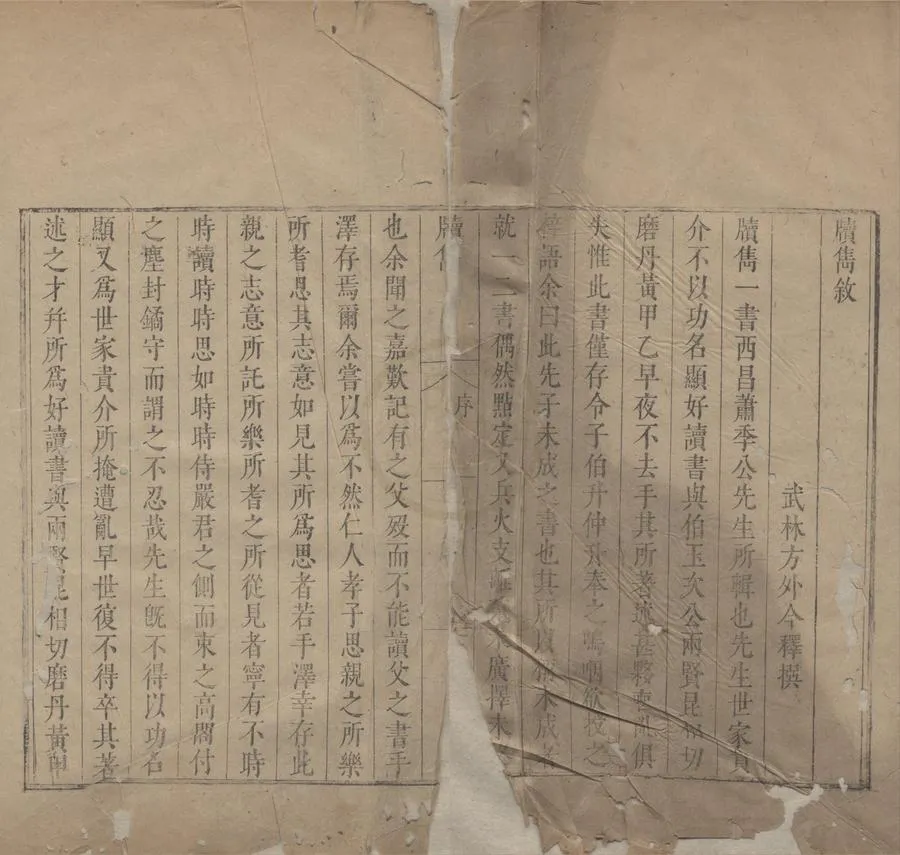 牘雋敘
武林方外今釋撰
牘雋一書西昌蕭季公先生所輯也先生世家貴
介不以功名顯好讀書與伯玉次公兩賢昆相切
磨丹黃甲乙早夜不去手其所著述甚夥喪亂俱
失惟此書僅存令子伯升仲升奉之嗚咽欲授之
梓語余曰此先子未成之書也其所以稱未成者
就一二書偶然點定又兵火支離不廣擇未
牘雋
序
一
也余聞之嘉歎記有之父歿而不能讀父之書手
澤存焉爾余嘗以爲不然仁人孝子思親之所樂
所耆思其志意如見其所爲思者若手澤幸存此
親之志意所託所樂所耆之所從見者寧有不時
時讀時時思如時時侍嚴君之側而束之高閣付
之塵封鐍守而謂之不忍哉先生旣不得以功名
顯又爲世家貴介所掩遭亂早世復不得卒其著
述之才幷所爲好讀書與兩賢昆相切磨丹黃甲